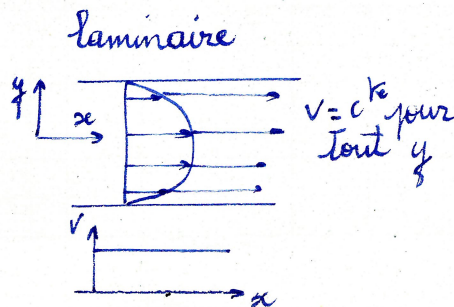 laminaire
y
x
v = cte pour
tout y
V
x